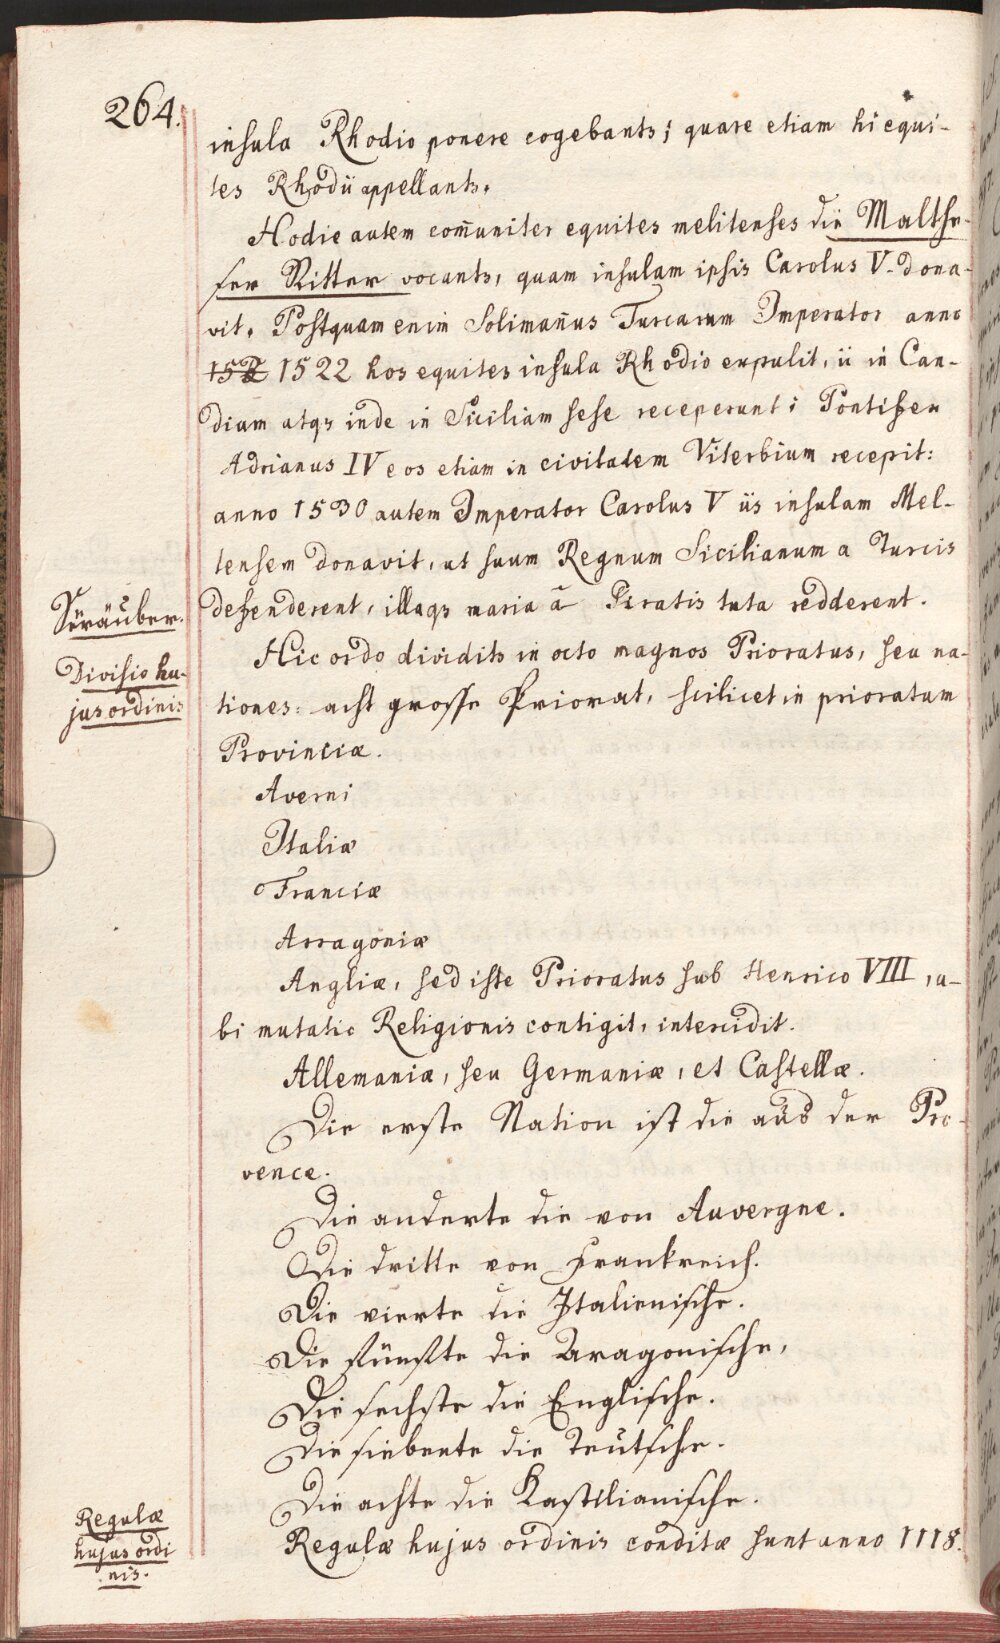 264.
insula Rhodio ponere cogebantr; quare etiam hi equi-
tes Rhodii appellantr.
Hodie autem com̄uniter equites melitenses die Malthe-
ser Ritter vocantr, quam insulam ipsis Carolus V. dona-
vit. Postquam enim Soliman̄us Turcarum Imperator anno
152 1522 hos equites insula Rhodio expulit, ii in Can-
diam atqz inde in Siciliam sese receperunt; Pontifex
Adrianus IV eos etiam in civitatem Viterbium recepit:
anno 1530 autem Imperator Carolus V iis insulam Mel-
tensem donavit, ut suum Regnum Sicilianum a Turcis
Seeräuber.
defenderent, illaqz maria ā Piratis tuta redderent.
Divisio hu-
jus ordinis
Hic ordo dividitr in octo magnos Prioratus, seu na-
tiones: acht grosse Priorat, scilicet in prioratum
Provinciæ.
Averni
Italiæ
Franciæ
Arragoniæ
Angliæ, sed iste Prioratus sub Henrico VIII, u-
bi mutatio Religionis contigit, intercidit.
Allemaniæ, seu Germaniæ, et Castellæ.
Die erste Nation ist die aus der Pro-
vence.
Die anderte die von Auvergne.
Die dritte von Frankreich.
Die vierte die Italienische.
Die fünfte die Aragonische,
Die sechste die Englische.
Die siebente die Teutsche.
Die achte die Kastilianische.
Regulæ
hujus ordi
nis.
Regulæ hujus ordinis conditæ sunt anno 1118.